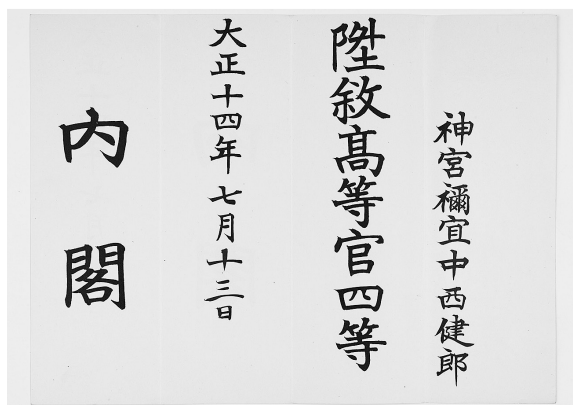 神宮禰宜中西健郎
陞敘髙等官四等
大正十四年七月十三日
内閣